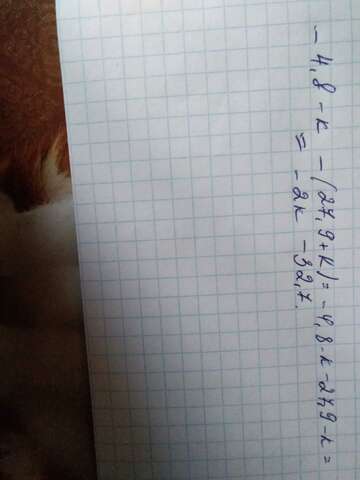 - 4,8 - к - (27,9+к) = -4,8-к-27,9-к =
= -2к -32,7.